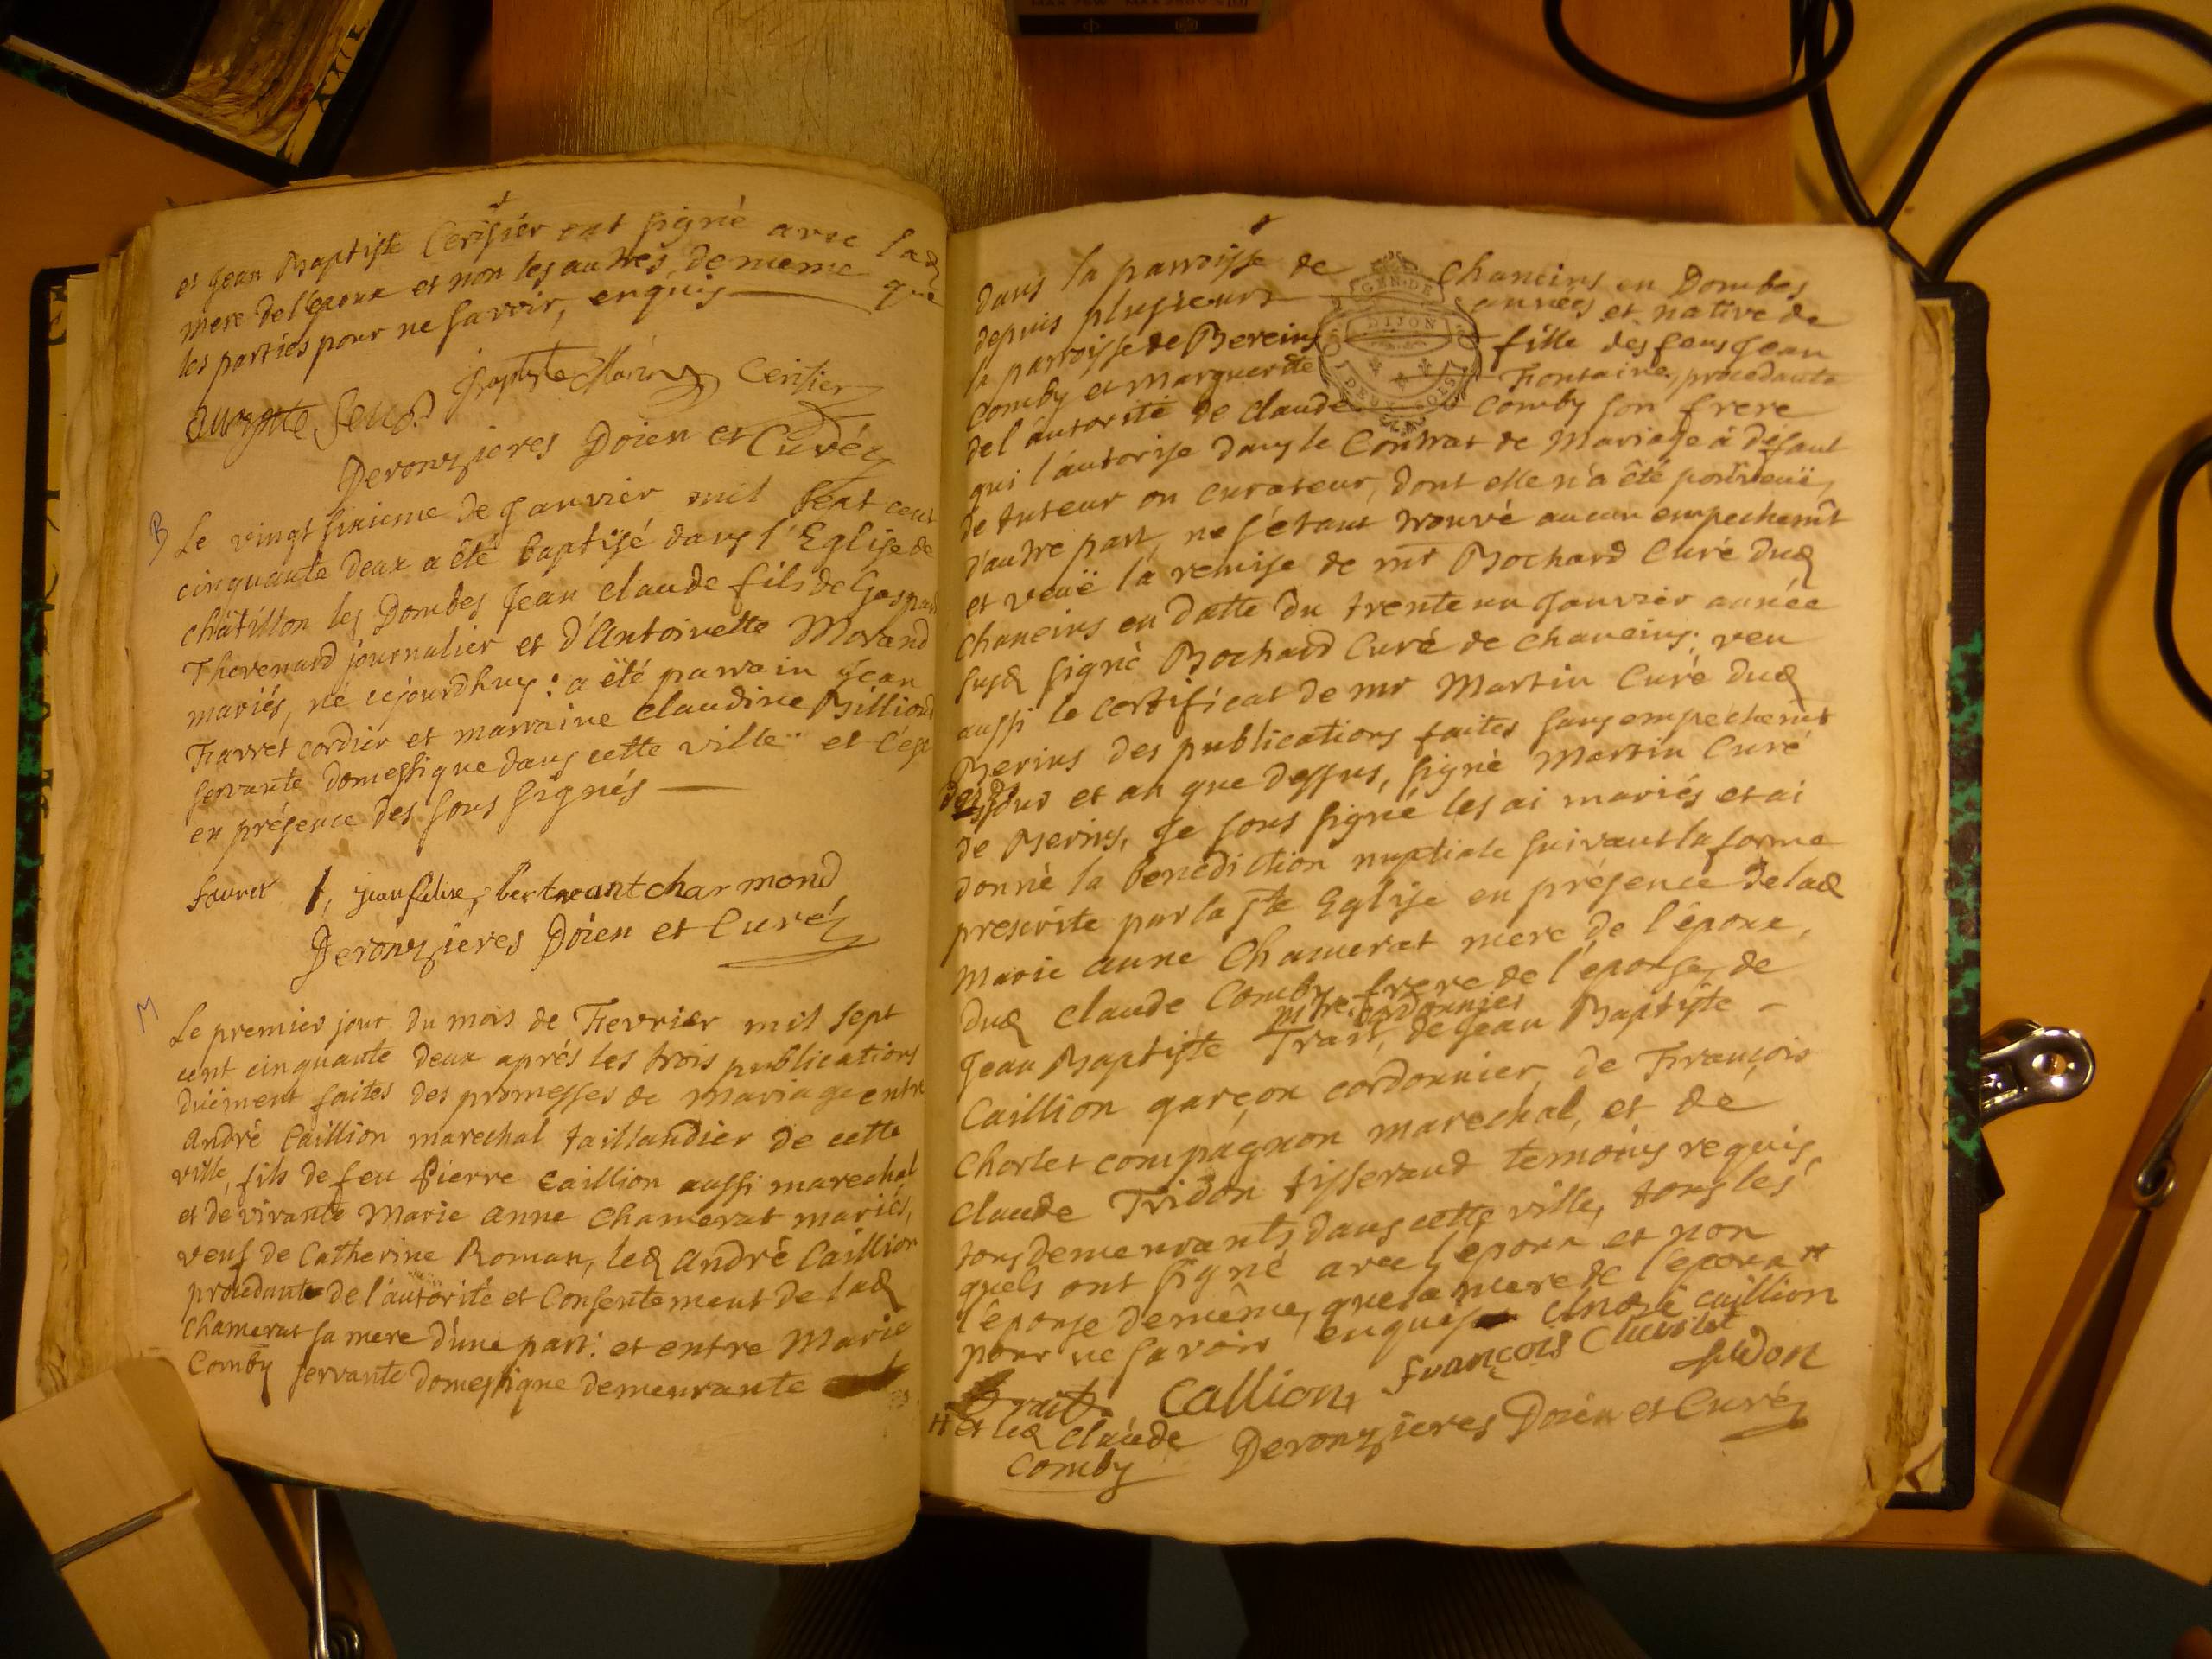 et Jean Baptiste Cerisier ont signé avec lad
mere de l'epoux et non les autres, de meme que
les parties pour ne savoir, enquis
Baptiste Cerisier
Deronzieres Doien et Curé
B Le vingt sixieme de Janvier mil sept cent
cinquante deux a êté baptisé dans l'Eglise de
châtillon les Dombes Jean claude fils de Gaspard
Thevenard journalier et d'Antoinette Morand
mariés, né cejourdhuy: a êté parrain Jean
Favret cordier et marraine claudine Billioud
servante domestique dans cette ville et c'est
en présence des sous signés
favret jean felise, bertreant charmond
Deronzieres Doien et Curé
M Le premier jour du mois de Fevrier mil sept
cent cinquante deux aprés les trois publications
duëment faites des promesses de mariage entre
André Caillion marechal taillandier de cette
ville, fils de feu Pierre Caillion aussi marechal
et de vivante Marie Anne Chamerat mariés,
veuf de Catherine Roman, led André Caillion
procedant de l'autorité et Consentement de lad
Chamerat sa mere d'une part: et entre Marie
Comby servante domestique demeurante
dans la parroisse de Chaneins en Dombes
depuis plusieurs années et native de
la parroisse de Bereins fille des feus Jean
Comby et Marguerite Fontaine, procedante
de l'autorité de claude Comby son frere
GEN. DE
DIJON
DEUX SOLS
qui l'autorise dans le Contrat de Mariage à défaut
de tuteur ou curateur, dont elle n'a êté pourveuë,
d'autre part, ne s'étant trouvé aucun empechemt
et veuë la remise de mr Bochard Curé dud
Chaneins en datte du trente un Janvier année
susd signé Bochard Curé de chaneins; veu
aussi le certificat de mr Martin Curé dud
Berins des publications faites sans empechemt
des jour et an que dessus, signé Martin Curé
de Berins, Je sous signé les ai mariés et ai
donné la benediction nuptiale suivant la forme
prescrite par la ste Eglise en présence de lad
Marie anne Chamerat mere de l'époux,
dud Claude Comby frere de l'epouse, de
mtre cordonnier
Jean Baptiste Trait, de Jean Baptiste
Caillion garçon cordonnier, de François
Chorlet compagnon marechal, et de
Claude Tridon tisserand temoins requis,
tous demeurants dans cette ville, tous les
quels ont signé avec l'epoux et non
l'épouse de même, que la mere de l'epoux #
pour ne savoir enquis André caillion
Trait. Callion, françois Chorlet
tridon
# et led Claude
Comby
Deronzieres Doien et Curé